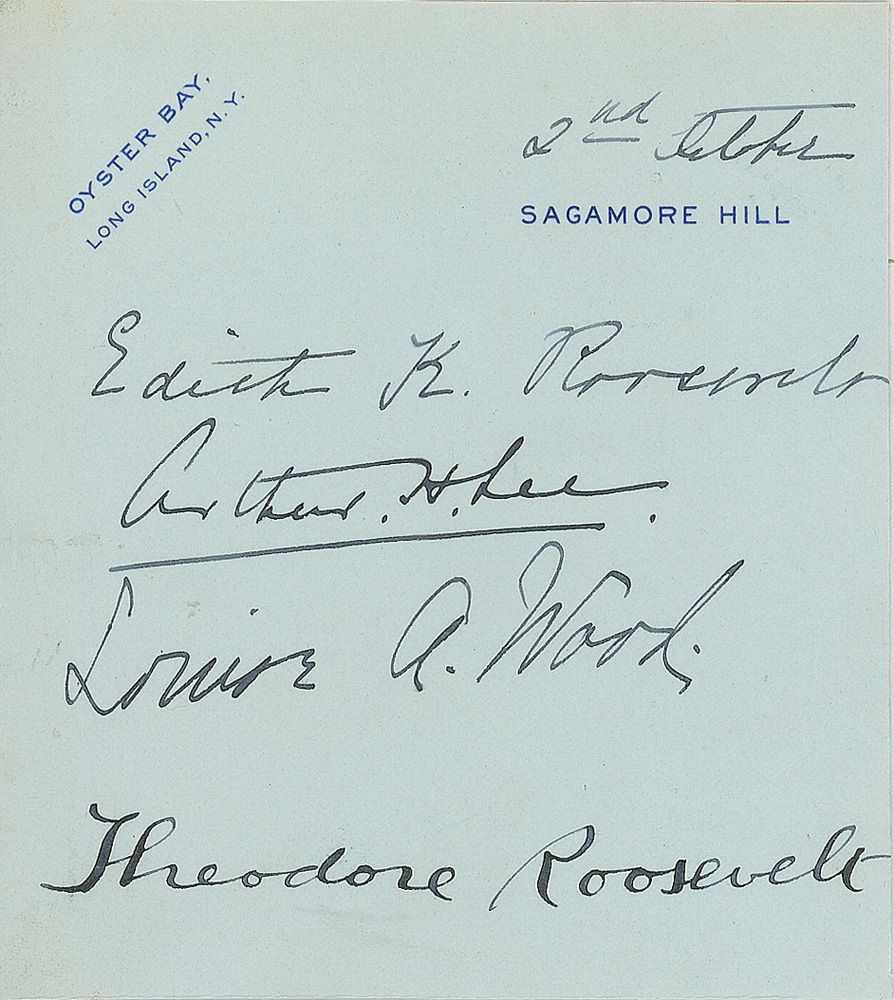 OYSTER BAY,
LONG ISLAND, N.Y.
2nd October
SAGAMORE HILL
Edith K. Roosevelt
Arthur. H. Lee.
Louise A. Wood.
Theodore Roosevelt